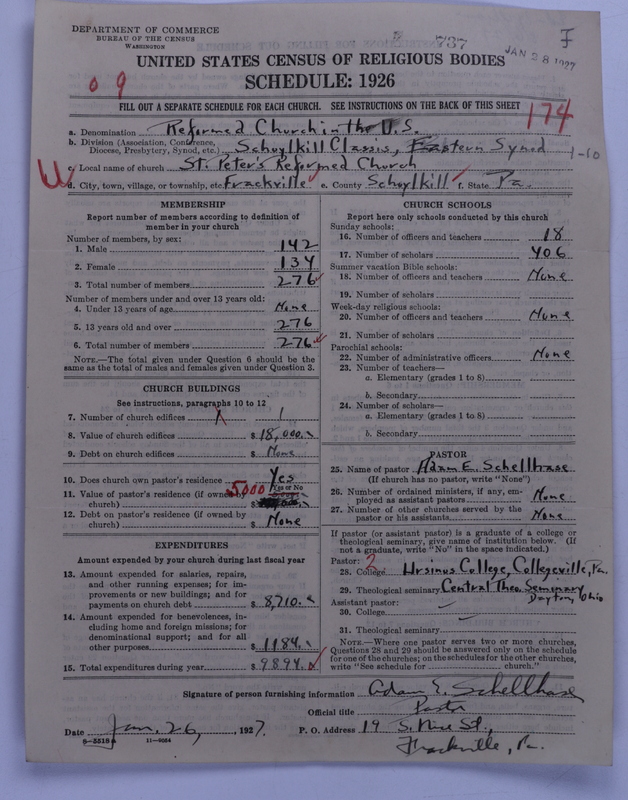 DEPARTMENT OF COMMERCE
BUREAU OF THE CENSUS
WASHINGTON
737
JAN 28 1927
UNITED STATES CENSUS OF RELIGIOUS BODIES
SCHEDULE: 1926
09
FILL OUT A SEPARATE SCHEDULE FOR EACH CHURCH. SEE INSTRUCTIONS ON THE BACK OF THIS SHEET
174
a. Denomination Reformed Church in the U.S.
b. Division (Association, Conference, Diocese, Presbytery, Synod, etc.) Schuylkill Classis, Eastern Synod
1-10
c. Local name of church St. Peter's Reformed Church
d. City, town, village, or township, etc. Frackville e. County Schuylkill f. State Pa.
MEMBERSHIP
Report number of members according to definition of
member in your church
Number of members, by sex:
1. Male 142
2. Female 134
3. Total number of members 276
Number of members under and over 13 years old:
4. Under 13 years of age None
5. 13 years old and over 276
6. Total number of members 276
NOTE.—The total given under Question 6 should be the
same as the total of males and females given under Question 3.
CHURCH BUILDINGS
See instructions, paragraphs 10 to 12
7. Number of church edifices 1
8. Value of church edifices $ 18,000.
9. Debt on church edifices $ None
10. Does church own pastor's residence Yes
Yes or No
11. Value of pastor's residence (if owned by
church) $ 5000
12. Debt on pastor's residence (if owned by
church) $ None
EXPENDITURES
Amount expended by your church during last fiscal year
13. Amount expended for salaries, repairs,
and other running expenses; for im-
provements or new buildings; and for
payments on church debt $ 8,710.
14. Amount expended for benevolences, in-
cluding home and foreign missions; for
denominational support; and for all
other purposes $ 1184.
15. Total expenditures during year $ 9894.
CHURCH SCHOOLS
Report here only schools conducted by this church
Sunday schools:
16. Number of officers and teachers 18
17. Number of scholars 406
Summer vacation Bible schools:
18. Number of officers and teachers None
19. Number of scholars
Week-day religious schools:
20. Number of officers and teachers None
21. Number of scholars
Parochial schools:
22. Number of administrative officers None
23. Number of teachers—
a. Elementary (grades 1 to 8)
b. Secondary
24. Number of scholars—
a. Elementary (grades 1 to 8)
b. Secondary
PASTOR
25. Name of pastor Adam E. Schellhase
(If church has no pastor, write "None")
26. Number of ordained ministers, if any, em-
ployed as assistant pastors None
27. Number of other churches served by the
pastor or his assistants None
If pastor (or assistant pastor) is a graduate of a college or
theological seminary, give name of institution below. (If
not a graduate, write "No" in the space indicated.)
Pastor: 2
28. College Ursinus College, Collegeville, Pa.
29. Theological seminary Central Theo. Seminary
Dayton, Ohio
Assistant pastor:
30. College
31. Theological seminary
NOTE.—Where one pastor serves two or more churches,
Questions 28 and 29 should be answered only on the schedule
for one of the churches; on the schedules for the other churches,
write "See schedule for church."
Signature of person furnishing information Adam E. Schellhase
Official title Pastor
Date Jan. 26, 1927. P. O. Address 19 S. Nice St.,
8-5518 11-9064
Frackville, Pa.